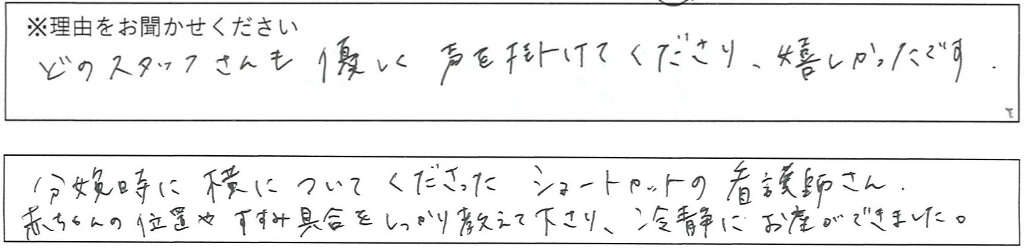 ※理由をお聞かせください
どのスタッフさんも 優しく 声を掛けてくださり、嬉しかったです.
分娩時に 横に ついて くださった ショートカットの 看護師さん.
赤ちゃんの 位置や すすみ具合を しっかり教えて下さり、冷静に お産ができました。